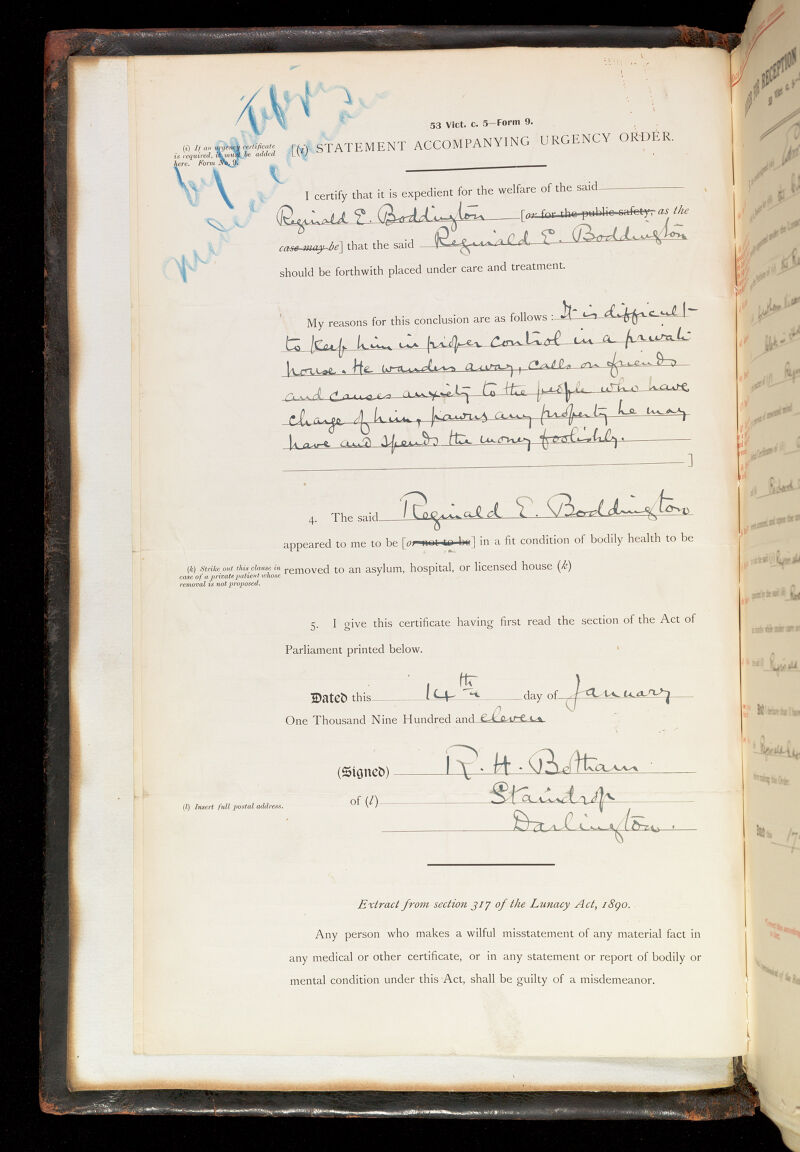 by certifying
medical man
53 Vict. c. 5—Form 9.
(i) If an urgency certificate
is required, it must be added
here. Form No. 9.
[(i) STATEMENT ACCOMPANYING URGENCY ORDER.
I certify that it is expedient for the welfare of the said
Reginald E. Boddington [or for the public safety, as the
case may be] that the said Reginald E. Boddington
should be forthwith placed under care and treatment.
My reasons for this conclusion are as follows: It is difficult
to keep him in proper control in a private
house. He wanders away, calls on friends
and causes anxiety to the people who have
charge of him, pawns any property he may
have and spends the money foolishly.
]
4. The said Reginald E. Boddington
appeared to me to be [or not to be] in a fit condition of bodily health to be
(k) Strike out this clause in
case of a private patient whose
removal is not proposed.
removed to an asylum, hospital, or licensed house (k)
5. I give this certificate having first read the section of the Act of
Parliament printed below.
Dated this 14th day of January
One Thousand Nine Hundred and eleven
(Signed) R. H. Botham
(l) Insert full postal address.
of (l) Staindrop
Darlington.
Extract from section 317 of the Lunacy Act, 1890.
Any person who makes a wilful misstatement of any material fact in
any medical or other certificate, or in any statement or report of bodily or
mental condition under this Act, shall be guilty of a misdemeanor.